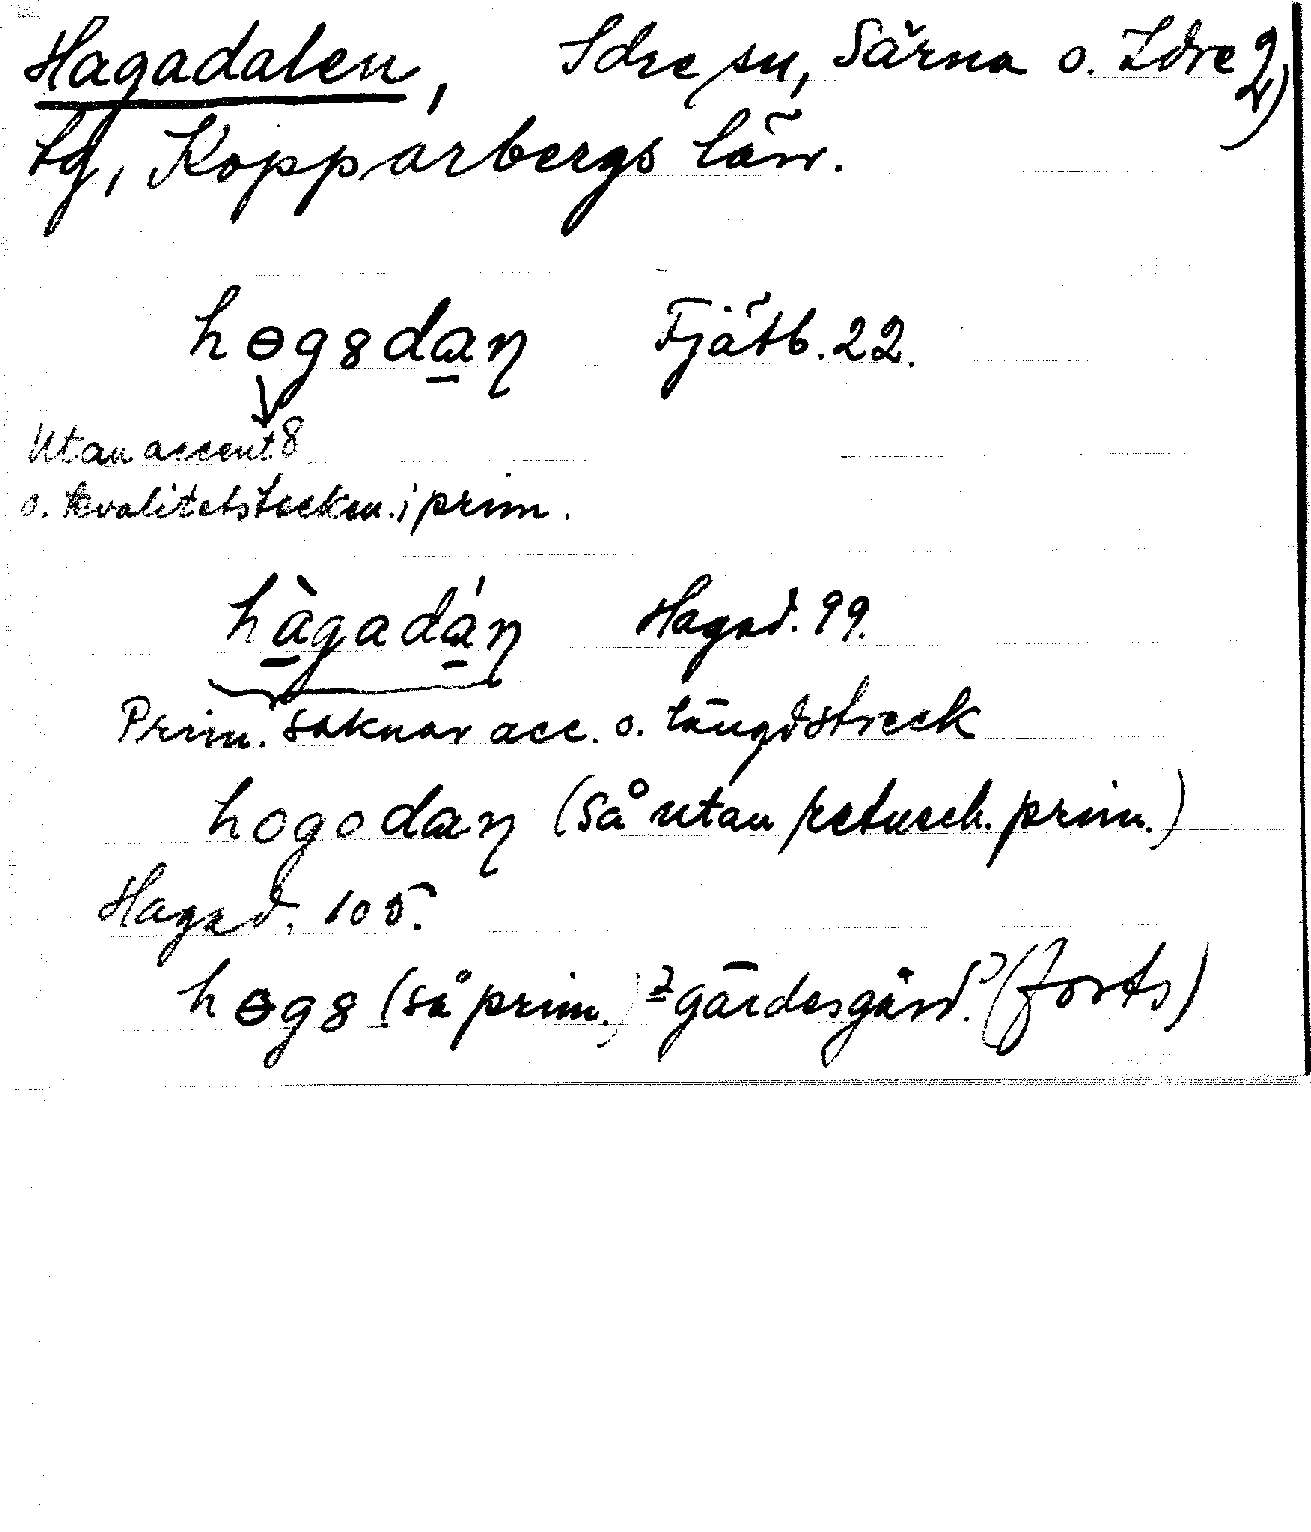 Hagadalen, Idre sn, Särna o. Idre 2)
tg, Kopparbergs län.
hɵgȣda̱ŋ Fjätb. 22.
Utan accent
o. kvalitetstecken i prim.
hà̱gadá̱ŋ Hagad. 99.
Prim. saknar acc. o. längdstreck
hogodaŋ (så utan retusch. prim.)
Hagad. 105.
hɵgȣ (så prim.) = gärdesgård. (forts)